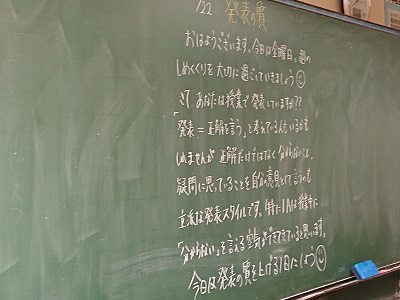 /22 発表の質
おはようございます。今日は金曜日。週の
しめくくりを大切に過ごしていきましょう☺
さて、あなたは授業で発表していますか??
「発表=正解を言う」と考えている人もいるかも
しれませんが正解だけではなく分からないこと、
疑問に思っていることを自分の意見として言うのも
立派な発表スタイルです。特に1Aは授業中に
「分からない」を言える空気ができてきていると思います。
今日は発表の質を上げる1日にしよう☺